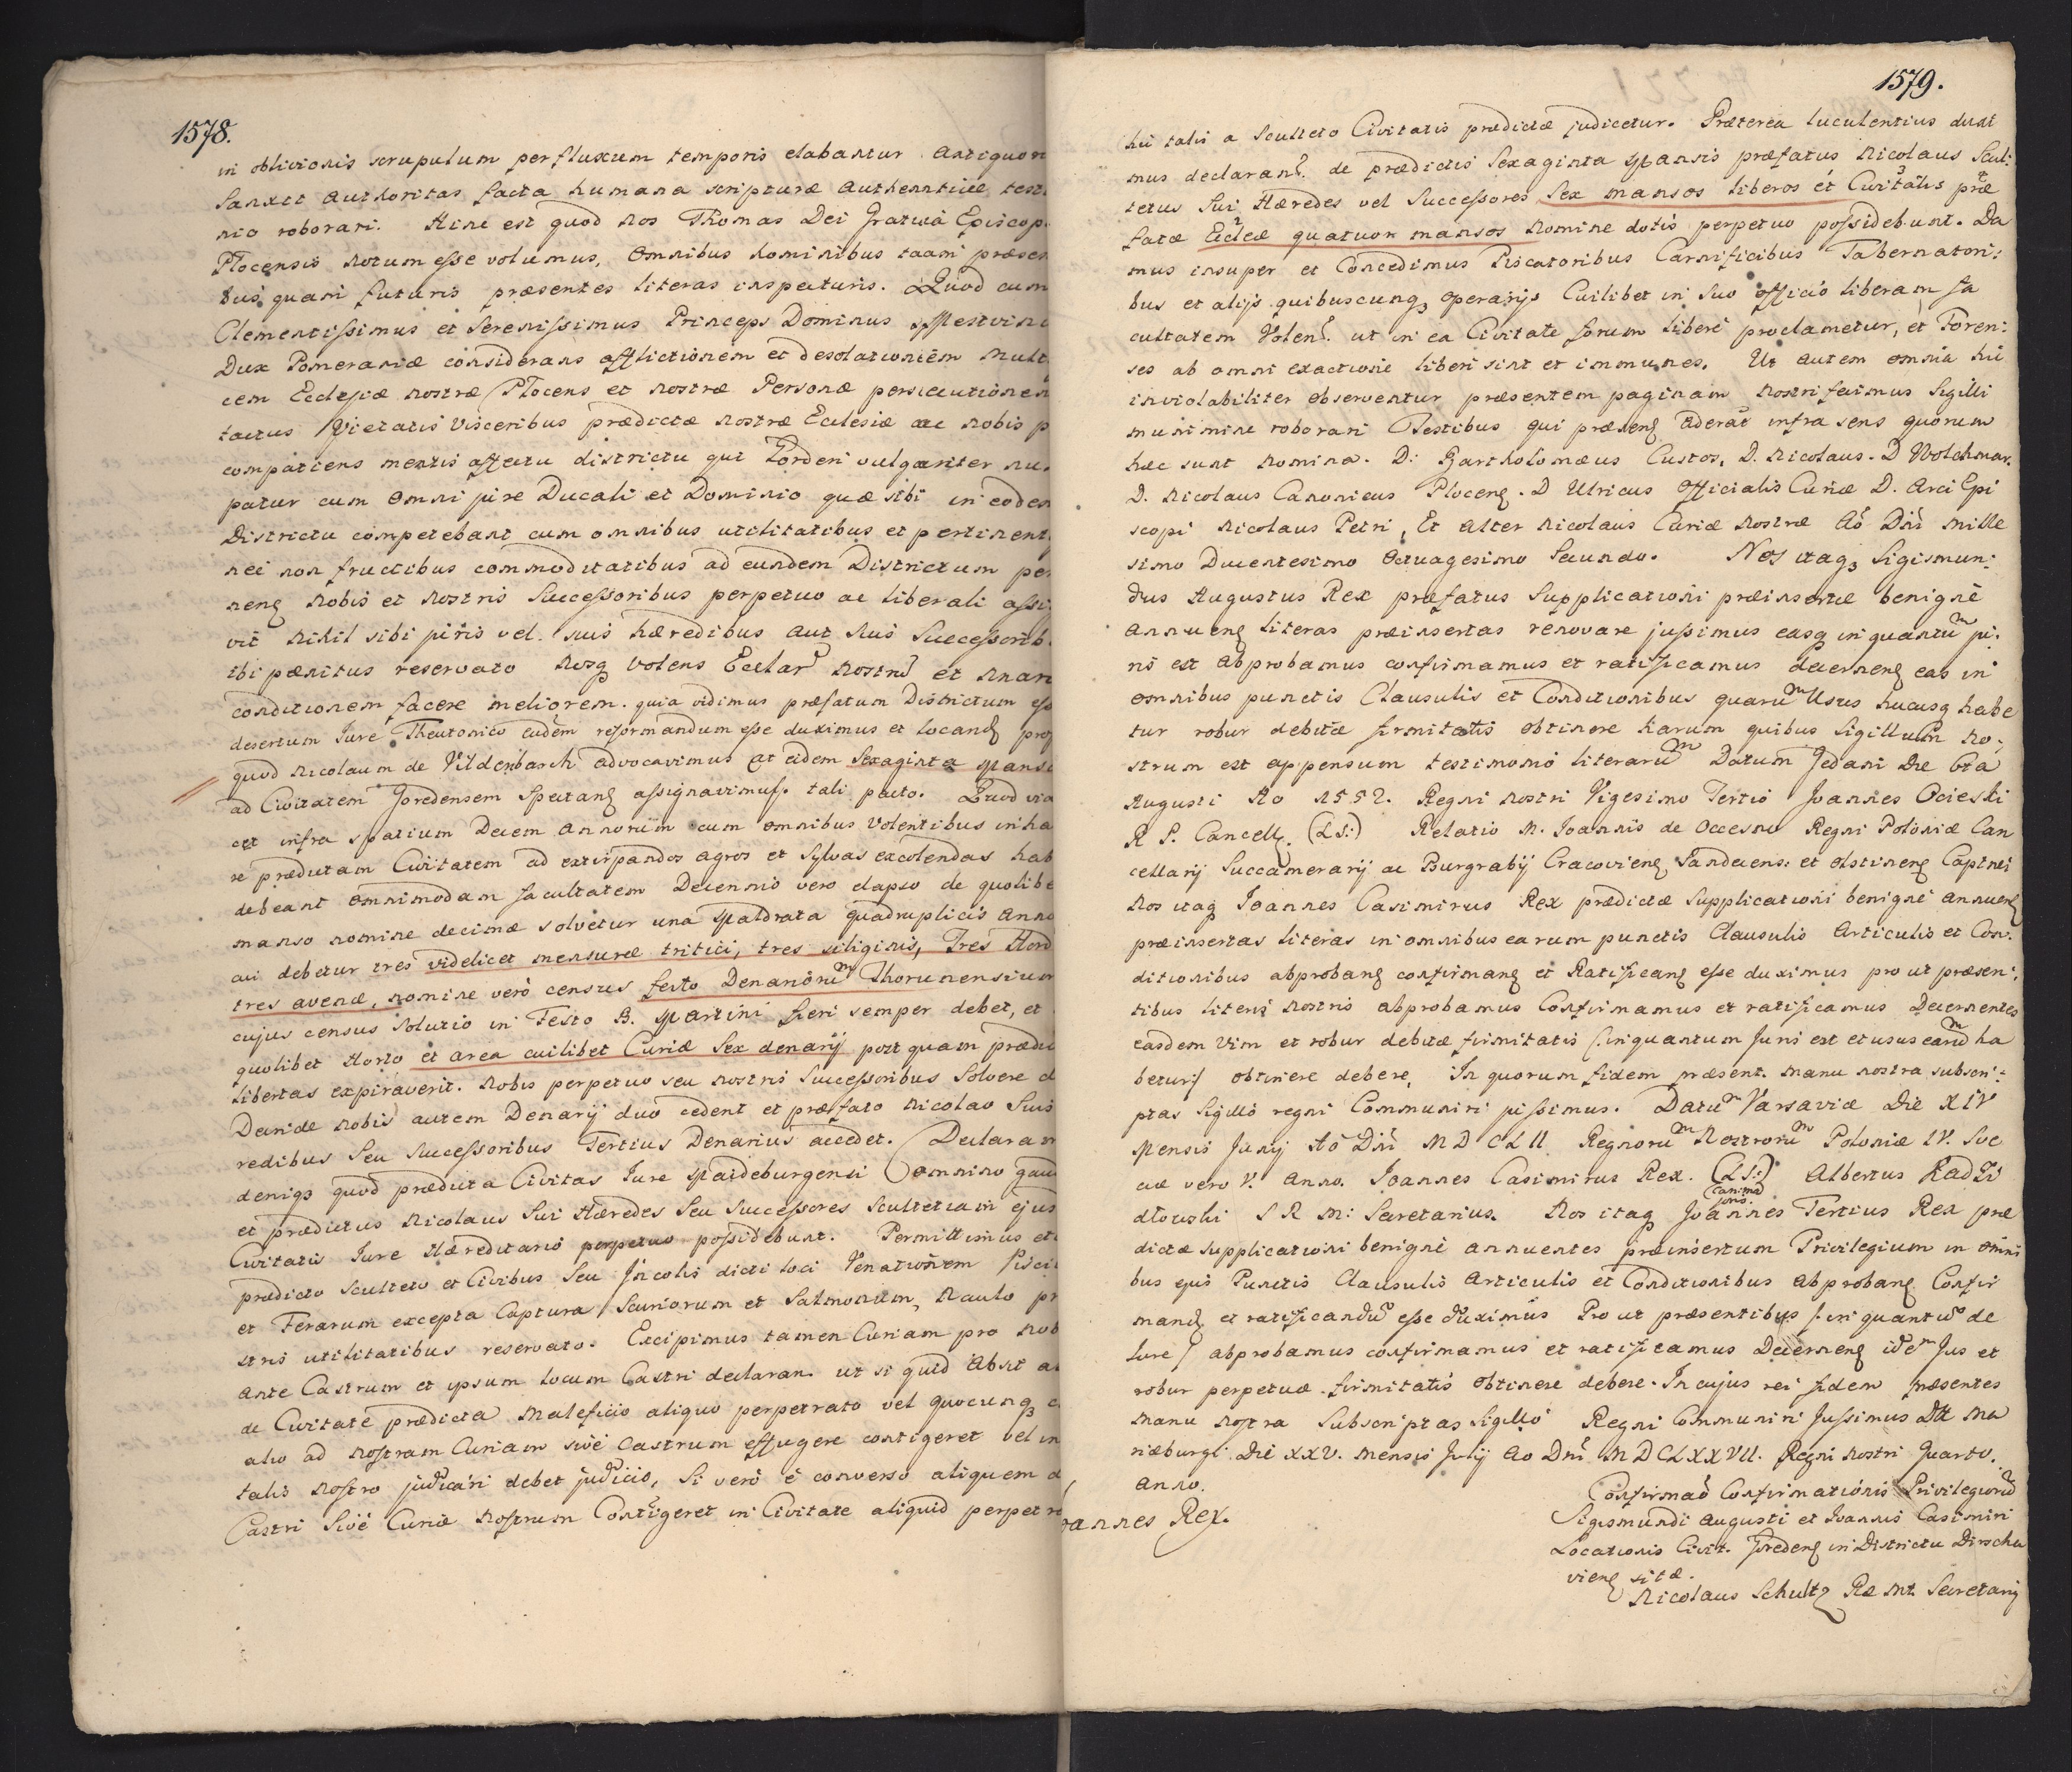 1578.
in oblivionis scrupulum per fluxum temporis elabantur Antiquor
Sanxit Authoritas facta humana scripturæ Authenticæ testi
nio roborari. Hinc est quod nos Thomas Dei Gratia Episcop
Plocensis notum esse volumus, omnibus hominibus taam præsen
bus quam futuris præsentes literas inspecturis. Quod cum
Clementissimus et Serenissimus Princeps Dominus Mestvinu
Dux Pomeraniæ considerans afflictionem et desolationem mult
cem Ecclesiæ nostræ Plocens et nostræ Personæ persecutionem
tactus Pietatis Visceribus prædictæ nostræ Ecclesiæ ac nobis p
compatiens mentis affectu districtu qui Gorden vulgariter nu
patur cum omni jure Ducali et Dominio quæ sibi in eodem
Districtu competebant cum omnibus utilitatibus et pertinent
nec non fructibus commoditatibus ad eundem Districtum per
nens nobis et nostris Successoribus perpetuo ac liberali assi
vit nihil sibi juris vel suis hæredibus aut suis Successorib
ibi pænitus reservato Nosq volens Ecclar nostrū et
conditionem facere meliorem. quia vidimus præfatum Districtum ess
desertum Jure Theutonico eudem reformandum esse duximus et locand prop
quod Nicolaum de Vildenbasch advocavimus at eidem Sexaginta Manso
ad Civitatem Gredensem Spectang assignavimus. tali pacto. Quod via
cet infra spatium Decem Annorum cum omnibus Volentibus inha
re prædictam Civitatem ad extirpandos agros et Sylvas excolendas hab
debeant omnimodam facultatem Decennio vero elapso de quolibe
manso nomine decimæ solvetur una Maldrata quadruplicis Anno
cui debetur tres videlicet mensuræ tritici, tres siliginis, Tres Hord
tres avenæ, nomine verò census ferto Denariorū Thorunensium
cujus census solutio in Festo B. Martini fieri semper debet, et
quolibet Horto et area cuilibet Curiæ Sex denarij post quam prædic
libertas expiraverit. nobis perpetuo seu nostris Successoribus Solvere d
Dænide nobis autem Denarij duo cedent et præfato Nicolao Suis
redibus Seu Successoribus Tertius Denarius accedet. Declaram
deniq quod prædicta Civitas Jure Maideburgensi omnino gaud
et prædictus Nicolaus Sui Hæredes Seu Successores Scultetiam ejus
Civitatis Jure Hæreditario perpetuo possidebunt. Permittimus eti
prædicto Sculteto et Civibus Seu Jncolis dicti loci Venationem Pisci
et Ferarum excepta Captura Sturiorum et Salmonum, Naulo pr
stris utilitatibus reservato. Excipimus tamen Curiam pro nob
ante Castrum et ipsum locum Castri declaran. ut si quid Absit a
de Civitate prædicta Maleficio aliquo perpetrato vel quocunq c
alio ad nostram Curiam sive Castrum effugere contigeret vel in
talis nostro judicari debet judicio, Si verò è converso aliquem d
Castri Sivè Curiæ Nostrum Contigeret in Civitate aliquid perpetra
1579.
hic talis a Sculteto Civitatis prædictæ judicetur. Præterea luculentius duxi
mus declaran. de prædictis Sexaginta Mansis præfatus Nicolaus Scul:
tetus Sui Hæredes vel Successores Sex mansos liberos et Civitatis præ
fatæ Eccleæ quatuor mansos Nomine dotis perpetuo possidebunt. Da
mus insuper et Concedimus Piscatoribus Carnificibus Tabernatori:
bus et alijs quibuscunq operarijs Cuilibet in Suo officio liberam fa
cultatem Volen. ut in ea Civitate forum liberè proclametur, et Foren:
ses ab omni exactione liberi sint et immunes. Ut autem omnia hic
inviolabiliter observentur præsentem paginam Nostri fecimus Sigilli
munimine roborari Testibus qui præsens Aderāt infra sens quorum
hæc sunt nomina. D: Bartholomæus Custos, D. Nicolaus. D Wolchmar.
D. Nicolaus Canonicus Plocens. D Ulricus Officialis Curiæ D. Arci Epi
scopi Nicolaus Petri, Et Alter Nicolaus Curiæ Nostræ Aō Dni Mille
simo Ducentesimo Octuagesimo Secundo. Nos itaq Sigismun:
dus Augustus Rex præfatus Supplicationi præinsertæ benignè
Annuens literas præinsertas renovare jussimus easq in quantū ju:
ris est Abprobamus confirmamus et ratificamus decernens eas in
omnibus punctis Clausulis et Conditionibus quarū Usus hucusq habe
tur robur debitæ firmitatis obtinere harum quibus Sigillum No:
strum est appensum testimonio literarū Datum Gedani Die 6ta
Augusti Ao 1552. Regni nostri Vigesimo Tertio Joannes Ocieski
R P. Cancell. (LS:) Relatio M. Joannis de Occesno Regni Poloniæ Can
cellarij Succamerarij ac Burgrabij Cracoviens Sandecens: et Olstinens Captnei
Nos itaq Joannes Casimirus Rex prædictæ Supplicationi benignè Annuens
præinsertas literas in omnibus earum punctis Clausulis Articulis et Con:
ditionibus abprobans confirmans et Ratificans esse duximus pro ut præsen:
tibus literis nostris abprobamus Confirmamus et ratificamus Decernentes
easdem Vim et robur debitæ firmitatis (inquantum Juris est et usus earū ha
betur) obtinere debere, In quorum fidem præsent. manu nostra subscri:
ptas Sigillo regni Communiri jussimus. Datū Varsaviæ Die XIV
Mensis Junij Aō Dni MDCLII Regnorū Nostrorū Poloniæ IV. Sve
ciæ vero V. Anno. Joannes Casimirus Rex. (LS:) Albertus Radzi
dlowski S R M: Secretarius. Nos itaq Joannes Tertius Rex præ
dictæ supplicationi benignè annuentes præinsertum Privilegium in omni
bus ejus Punctis Clausulis Articulis et Conditionibus Abprobans Confir
mans et ratificandū esse duximus Pro ut præsentibus (in quantū de
Iure) abprobamus confirmamus et ratificamus Decernens idem Jus et
robur perpetuæ firmitatis obtinere debere. In cujus rei fidem præsentes
Manu Nostra Subscriptas Sigillo Regni Communiri Jussimus Dtt Ma
riæburgi Die XXV. mensis Julij Ao Dni MDCLXXVII. Regni Nostri Quarto.
Anno.
oannes Rex.
Confirmaō Confirmationis Privilegiorū
Sigismundi Augusti et Joannis Casimiri
Locationis Civit. Gredens in Districtu Dirschu
viens sitæ.
Nicolaus Schultz Ræ Mt. Secretarij